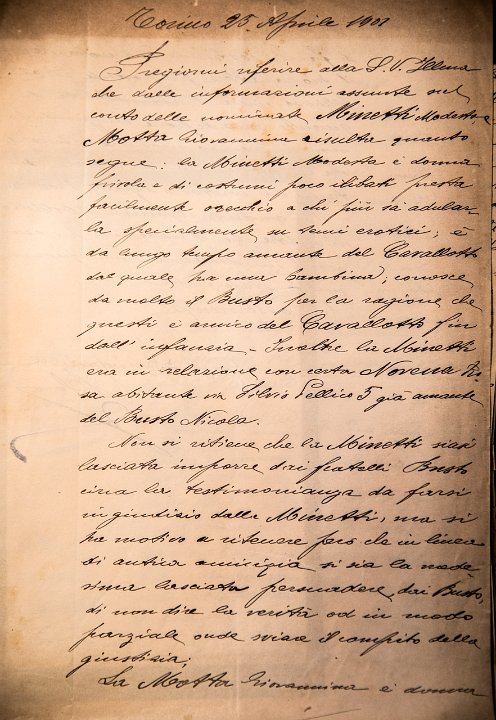 Torino 25 Aprile 1901
Pregiomi riferire alla S. V. Illma
che dalle informazioni assunte sul
conto delle nominate Minetti Modesta e
Motta Giovannina risulta quanto
segue: la Minetti Modesta è donna
frivola e di costumi poco illibati presta
facilmente orecchio a chi più sa adular-
la specialmente su temi erotici; è
da lungo tempo amante del Cavallotti
dal quale ha una bambina; conosce
da molto il Busto per la ragione che
questi è amico del Cavallotti fin
dall' infanzia - Inoltre la Minetti
era in relazione con certa Novena Ro-
sa abitante via Silvio Pellico 5 già amante
del Busto Nicola.
Non si ritiene che la Minetti siasi
lasciata imporre dai fratelli Busto
circa la testimonianza da farsi
in giudizio dalla Minetti, ma si
ha motivo a ritenere però che in linea
di antica amicizia si sia la mede
sima lasciata persuadere, dai Busto,
di non dire la verità od in modo
parziale onde sviare il compito della
giustizia.
La Motta Giovannina è donna